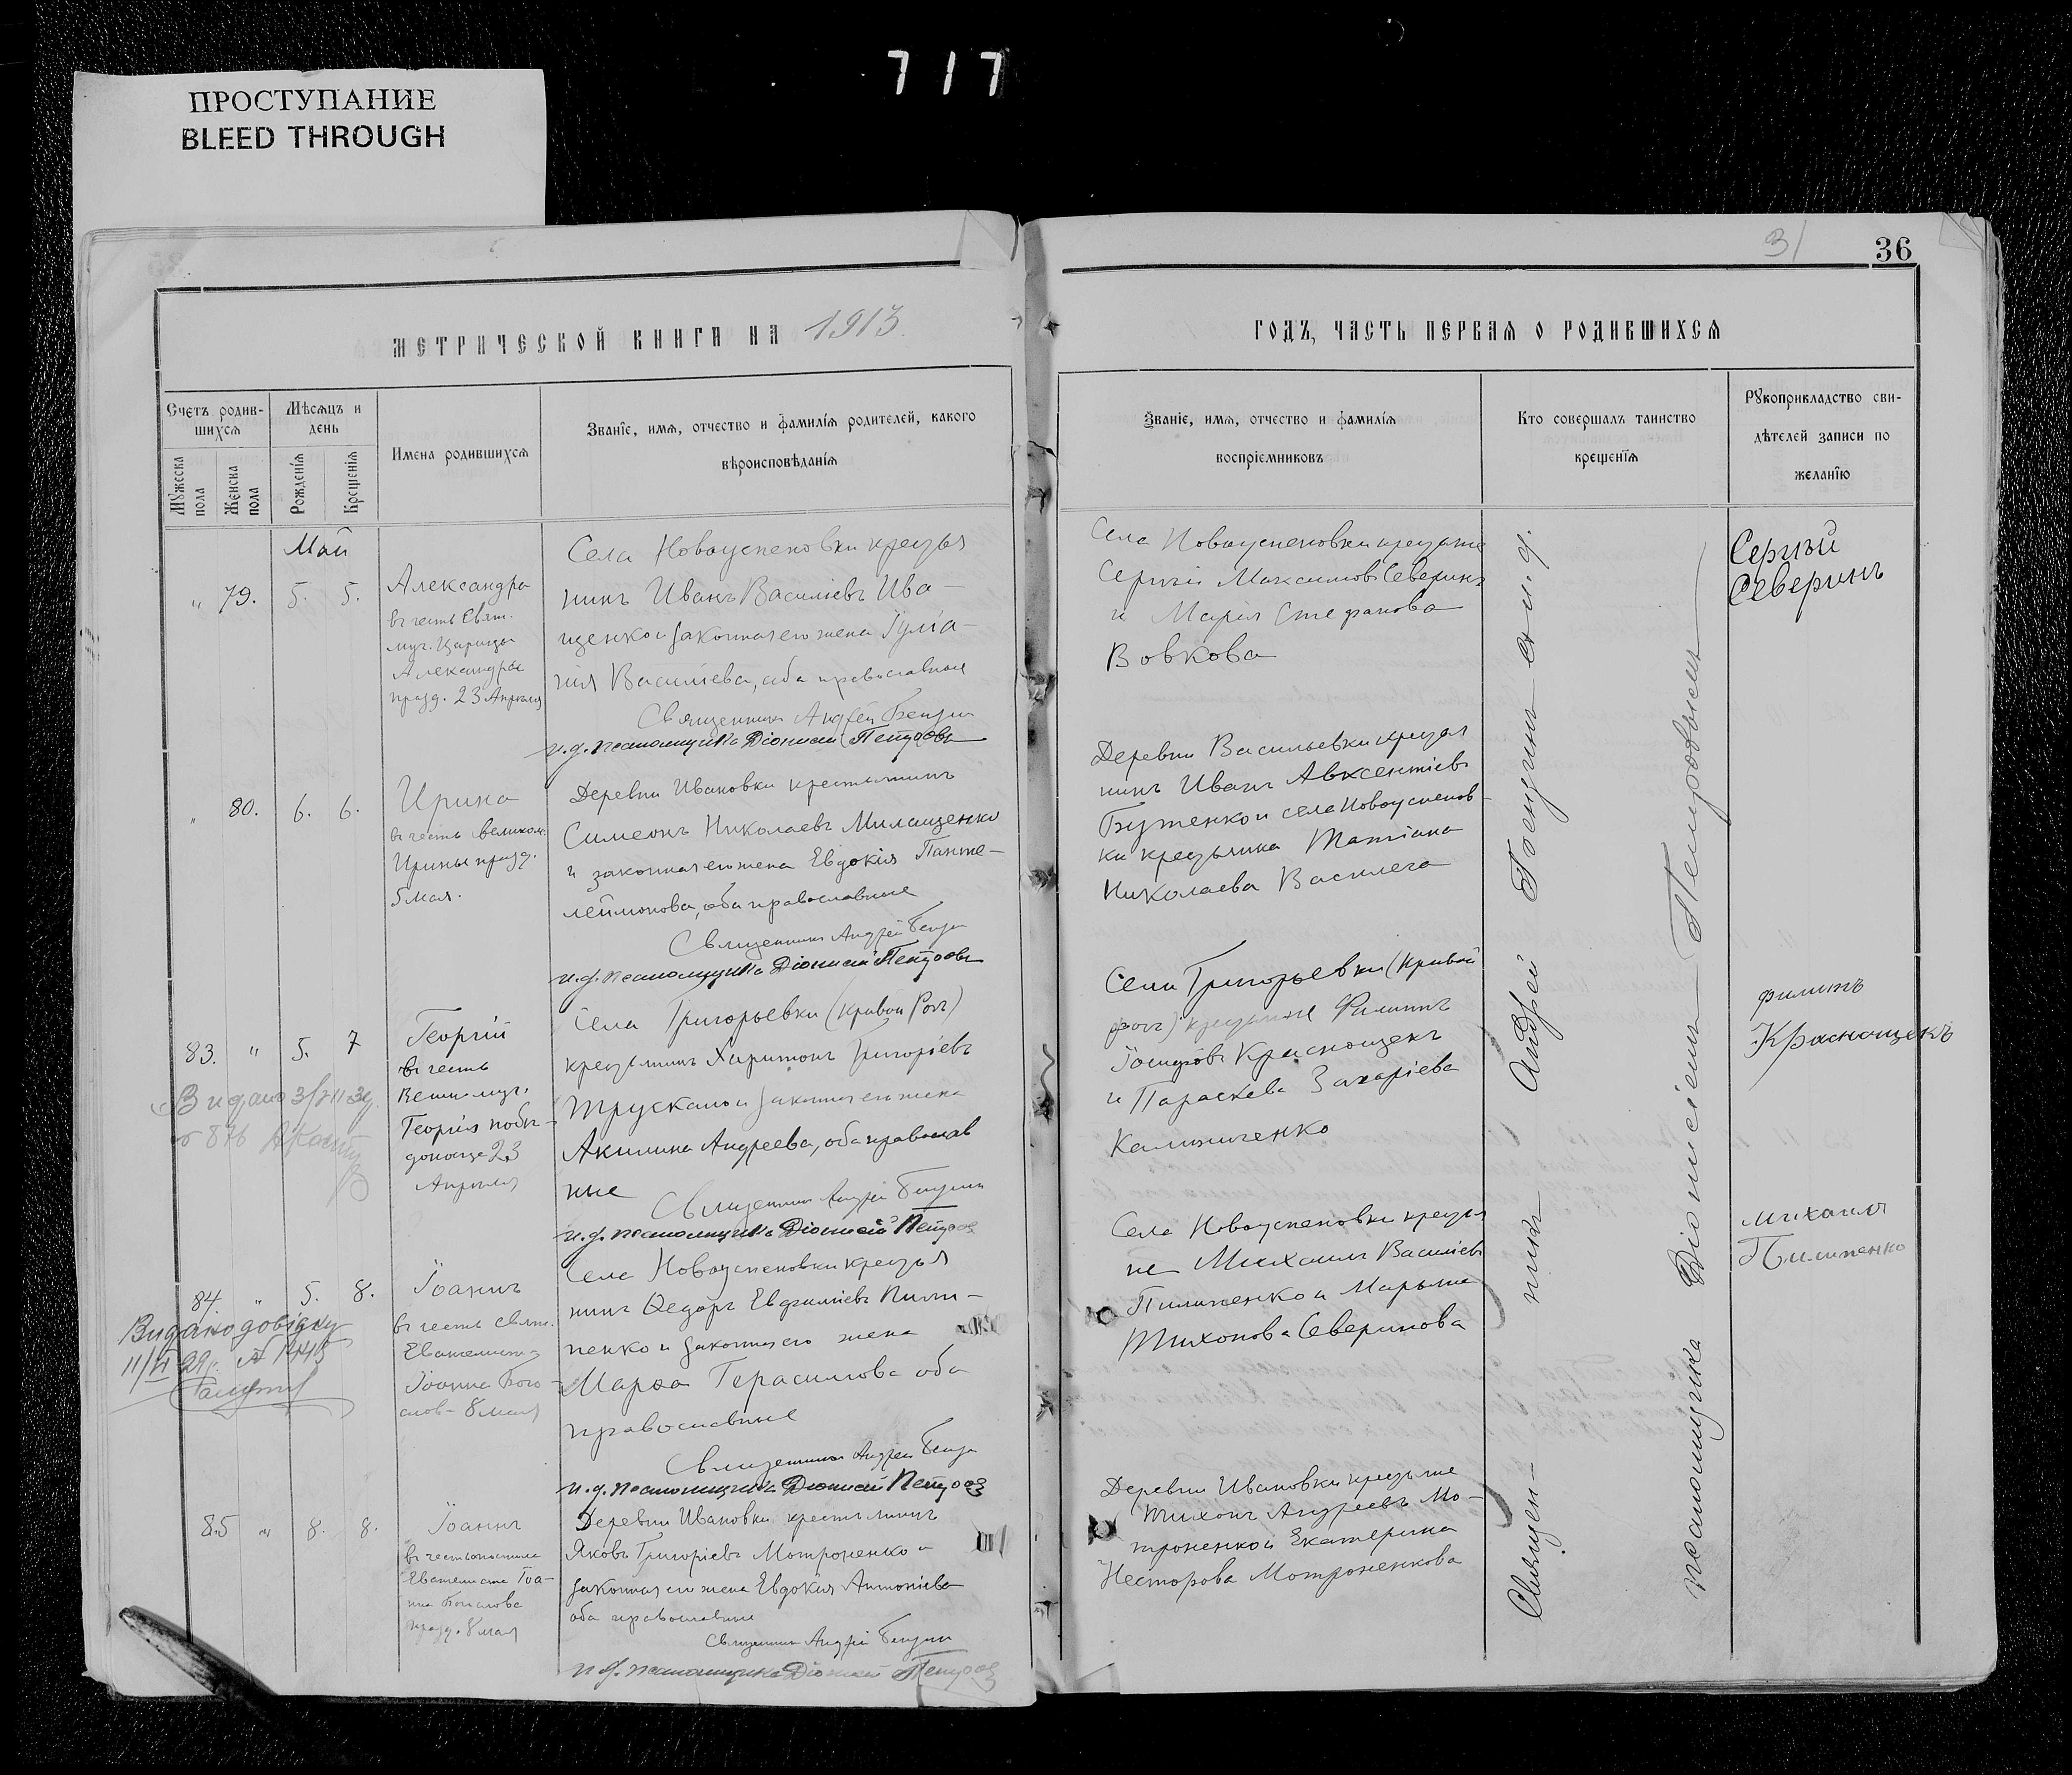 717
ПРОСТУПАНИЕ
BLEED THROUGH
31
36
МЕТРИЧЕСКОЙ КНИГИ НА 1913
ГОДЪ, ЧАСТЬ ПЕРВАЯ О РОДИВШИХСЯ
Счетъ родив-
шихся
Мѣсяцъ и
день
Мужеска
пола
Женска
пола
Рожденія
Крещенія
Имена родившихся
Званіе, имя, отчество и фамилія родителей, какого
вѣроисповѣданія
Званіе, имя, отчество и фамилія
воспріемниковъ
Кто совершалъ таинство
крещенія
Рукоприкладство сви-
дѣтелей записи по
желанію
Май
" 79. 5. 5.
Александра
въ честь Свят.
муч. Царицы
Александры
празд. 23 Апрѣля
Села Новоуспеновки крестья
нинъ Иванъ Василіевъ Ива-
щенко и законная его жена Іулiа-
нія Василіева, оба православные
Священникъ Андрей
и.д. псаломщика Діонисій Петровъ
Села Новоуспеновки крестьяне
Сергій Максимовъ Северинъ
и Марія Стефанова
Вовкова
Сергѣй
Северинъ
" 80. 6. 6.
Ирина
въ честь великом.
Ирины празд.
5 мая.
Деревни Ивановки крестьянинъ
Симеонъ Николаевъ Милащенко
и законная его жена Евдокія Панте-
леймонова, оба православные
Священникъ Андрей
и.д. псаломщика Діонисій Петровъ
Деревни Васильевки крестья
нинъ Иванъ Авксентіевъ
Бутенко и села Новоуспенов-
ки крестьянка Татіана
Николаева Василега
83. " 5. 7
Георгій
въ честь
Велик. муч.
Георгія побѣ-
доносца 23
Апрѣля
Села Григорьевки (Кривой Рогъ)
крестьянинъ Харитонъ Григоріевъ
и законная его жена
Акилина Андреева, оба православ
ные
Священникъ Андрей
и.д. псаломщика Діонисій Петровъ
Села Григорьевки (Кривой
Рогъ) крестьяне Филиппъ
Іосифовъ Краснощекъ
и Параскева Захаріева
Калиниченко
Филипъ
Краснощекъ
Видано
84. " 5. 8.
Іоаннъ
въ честь Свят.
Евангелиста
Іоанна Бого-
слов- 8 мая
Села Новоуспеновки крестья
нинъ Ѳедоръ Евфиміевъ Пили-
пенко и законная его жена
Марѳа Герасимова оба
православные
Священникъ Андрей
и.д. псаломщика Діонисій Петровъ
Села Новоуспеновки крестья
не Михаилъ Василіевъ
Пилипенко и Марьяна
Тихонова Северинова
Михаилъ
Пилипенко
Видано довідку
85 " 8. 8.
Іоаннъ
въ честь апостола
Евангелиста Іоа-
нна Богослова
празд. 8 мая
Деревни Ивановки крестьянинъ
Яковъ Григоріевъ Мотроненко и
законная его жена Евдокія Антоніева
оба православные
Священникъ Андрей
и.д. псаломщика Діонисій Петровъ
Деревни Ивановки крестьяне
Тихонъ Андреевъ Мо-
троненко и Екатерина
Несторова Мотроненкова
Священ-
никъ Андрей
и.д.
псаломщика Діонисіемъ Петровымъ